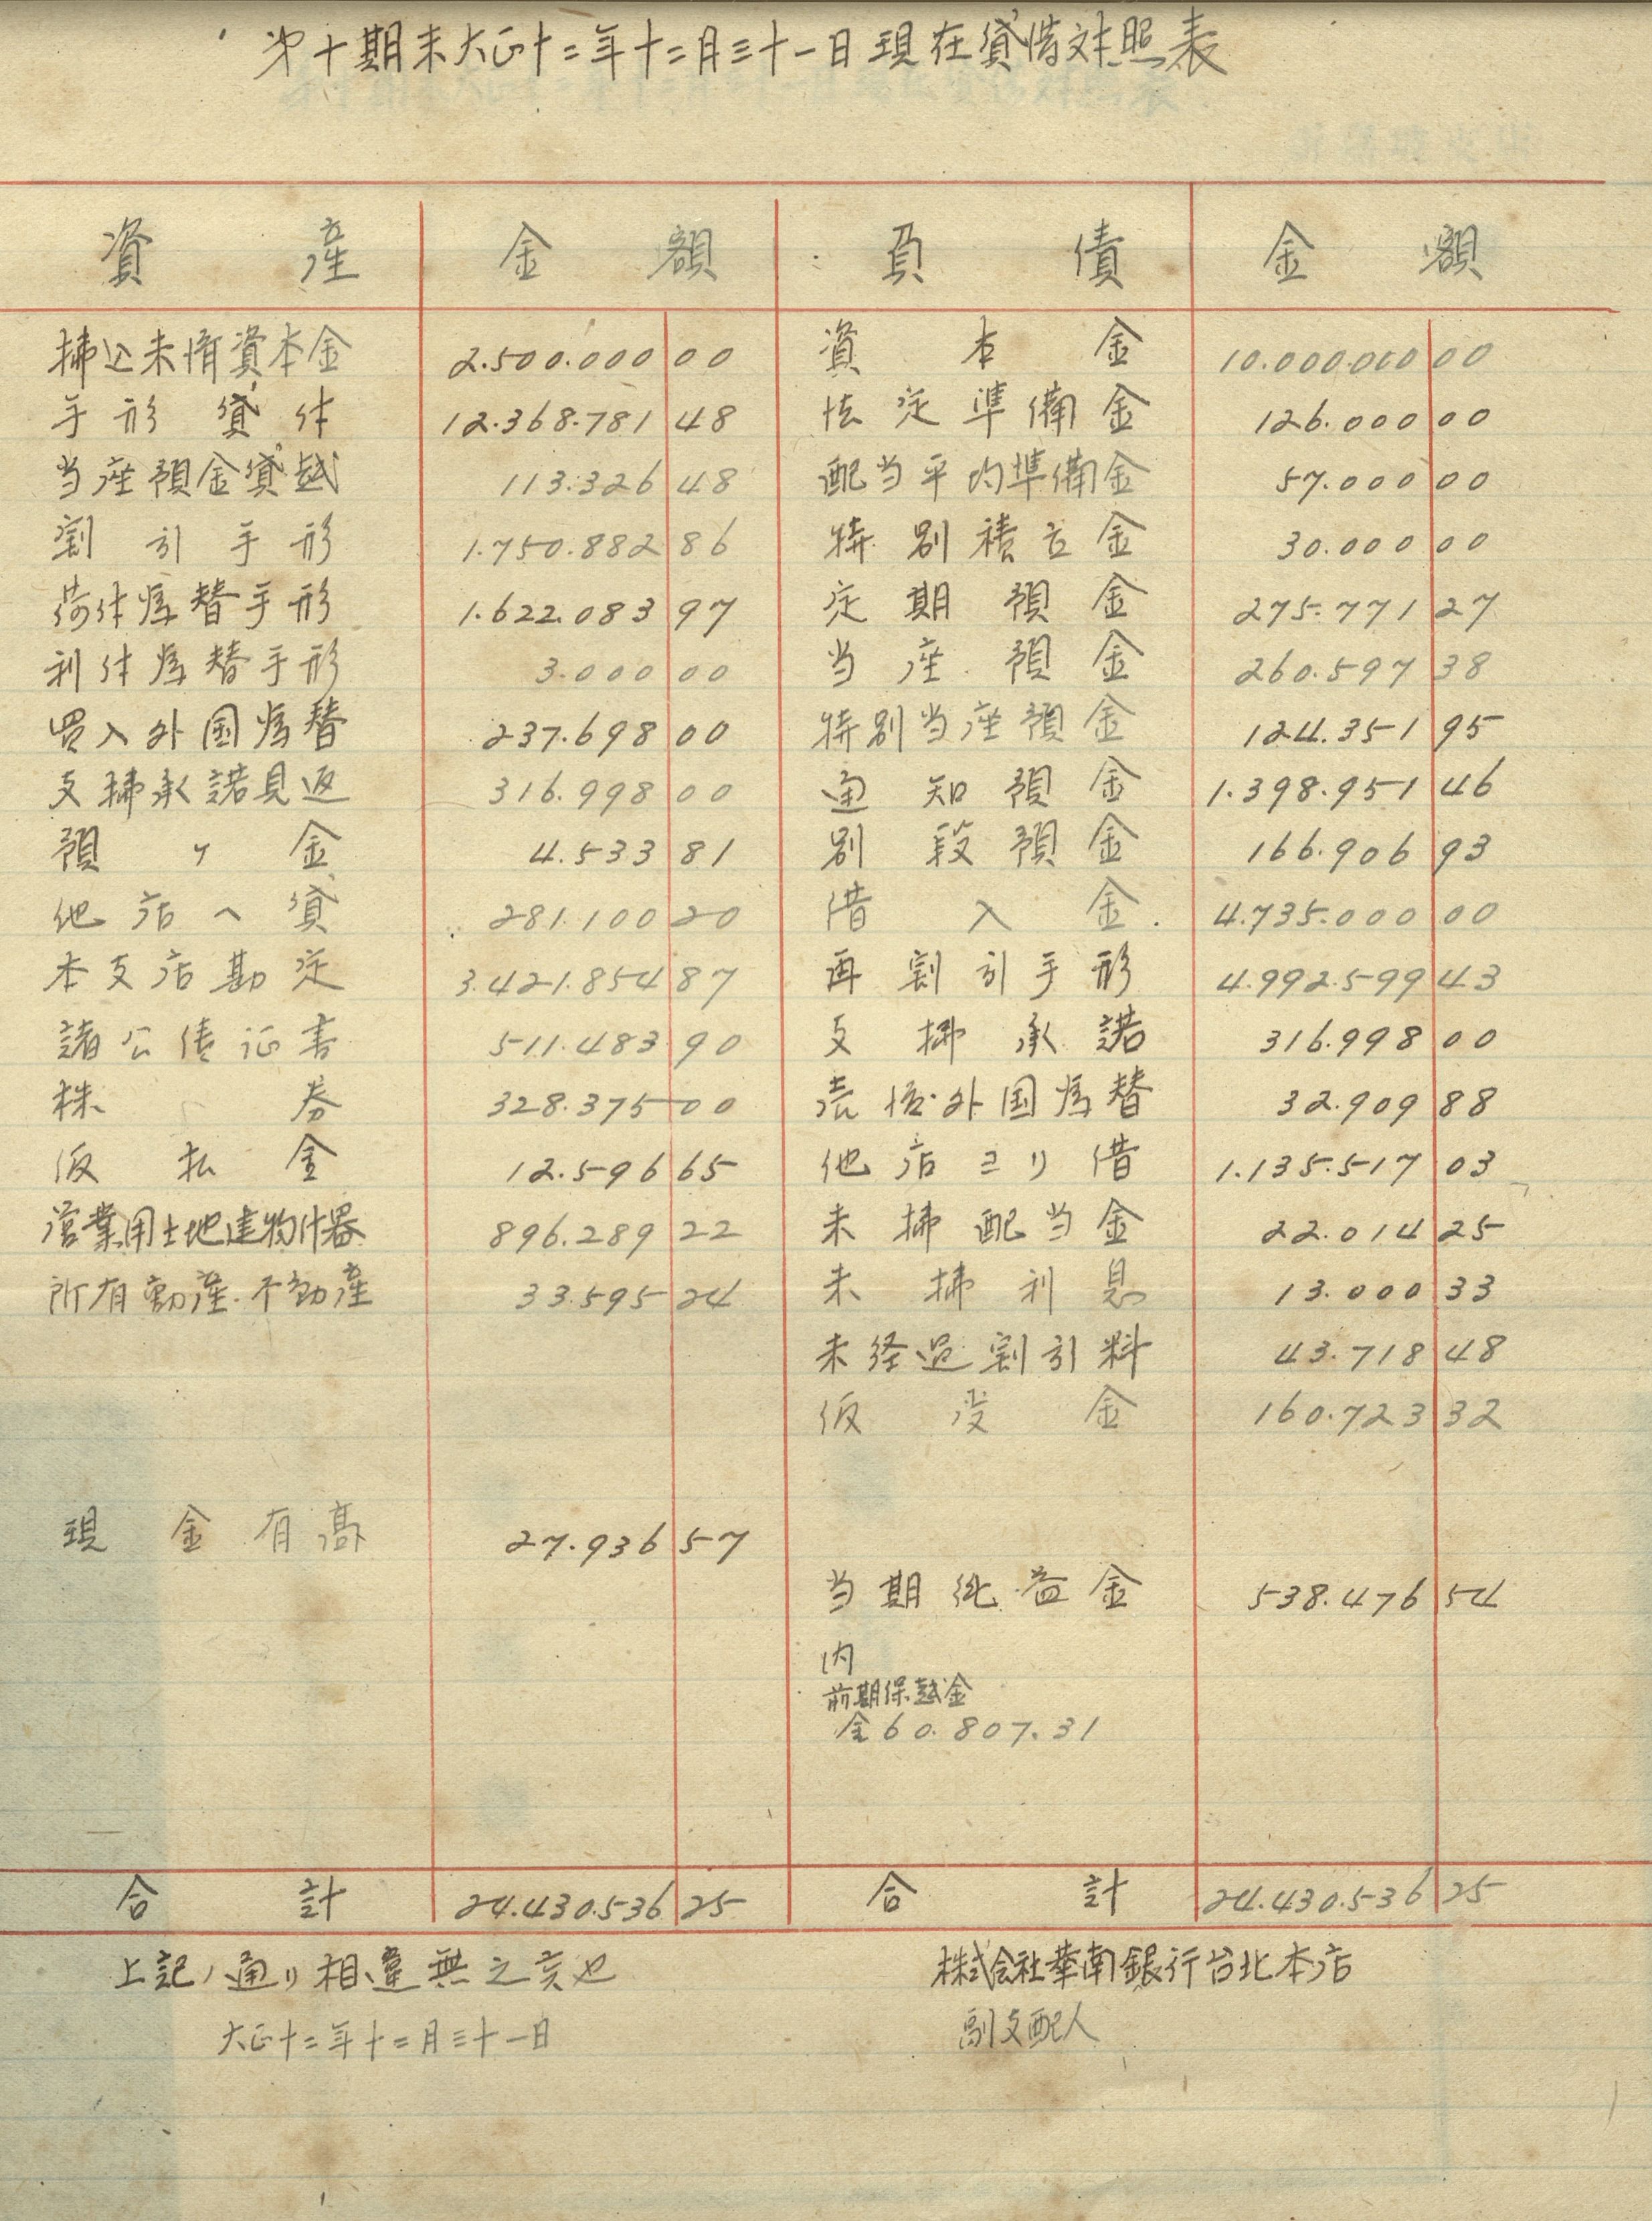 第十期末大正十二年十二月三十一日現在貸借対照表
資産 金額 負債 金額
払込未済資本金 2.500.000 00 資本金 10.000.000 00
手形貸付 12.368.781 48 法定準備金 126.000 00
当座預金貸越 113.326 48 配当平均準備金 57.000 00
割引手形 1.750.882 86 特別積立金 30.000 00
荷付為替手形 1.622.083 97 定期預金 275.771 27
利付為替手形 3.000 00 当座預金 260.597 38
買入外国為替 237.698 00 特別当座預金 124.351 95
支拂承諾見返 316.998 00 通知預金 1.398.951 46
預ケ金 4.533 81 別段預金 166.906 93
他店ヘ貸 281.100 20 借入金 4.735.000 00
本支店勘定 3.421.854 87 再割引手形 4.992.599 43
諸公債証書 511.483 90 支拂承諾 316.998 00
株券 328.375 00 売渡外国為替 32.909 88
仮払金 12.596 65 他店ヨリ借 1.135.517 03
営業用土地建物什器 896.289 22 未拂配当金 22.014 25
所有動産不動産 33.595 24 未拂利息 13.000 33
未経過割引料 43.718 48
仮受金 160.723 32
現金有高 27.936 57
当期純益金 538.476 54
内
前期繰越金
金60.807.31
合計 24.430.536 25 合計 24.430.536 25
上記ノ通リ相違無之候也 株式会社華南銀行台北本店
大正十二年十二月三十一日 副支配人